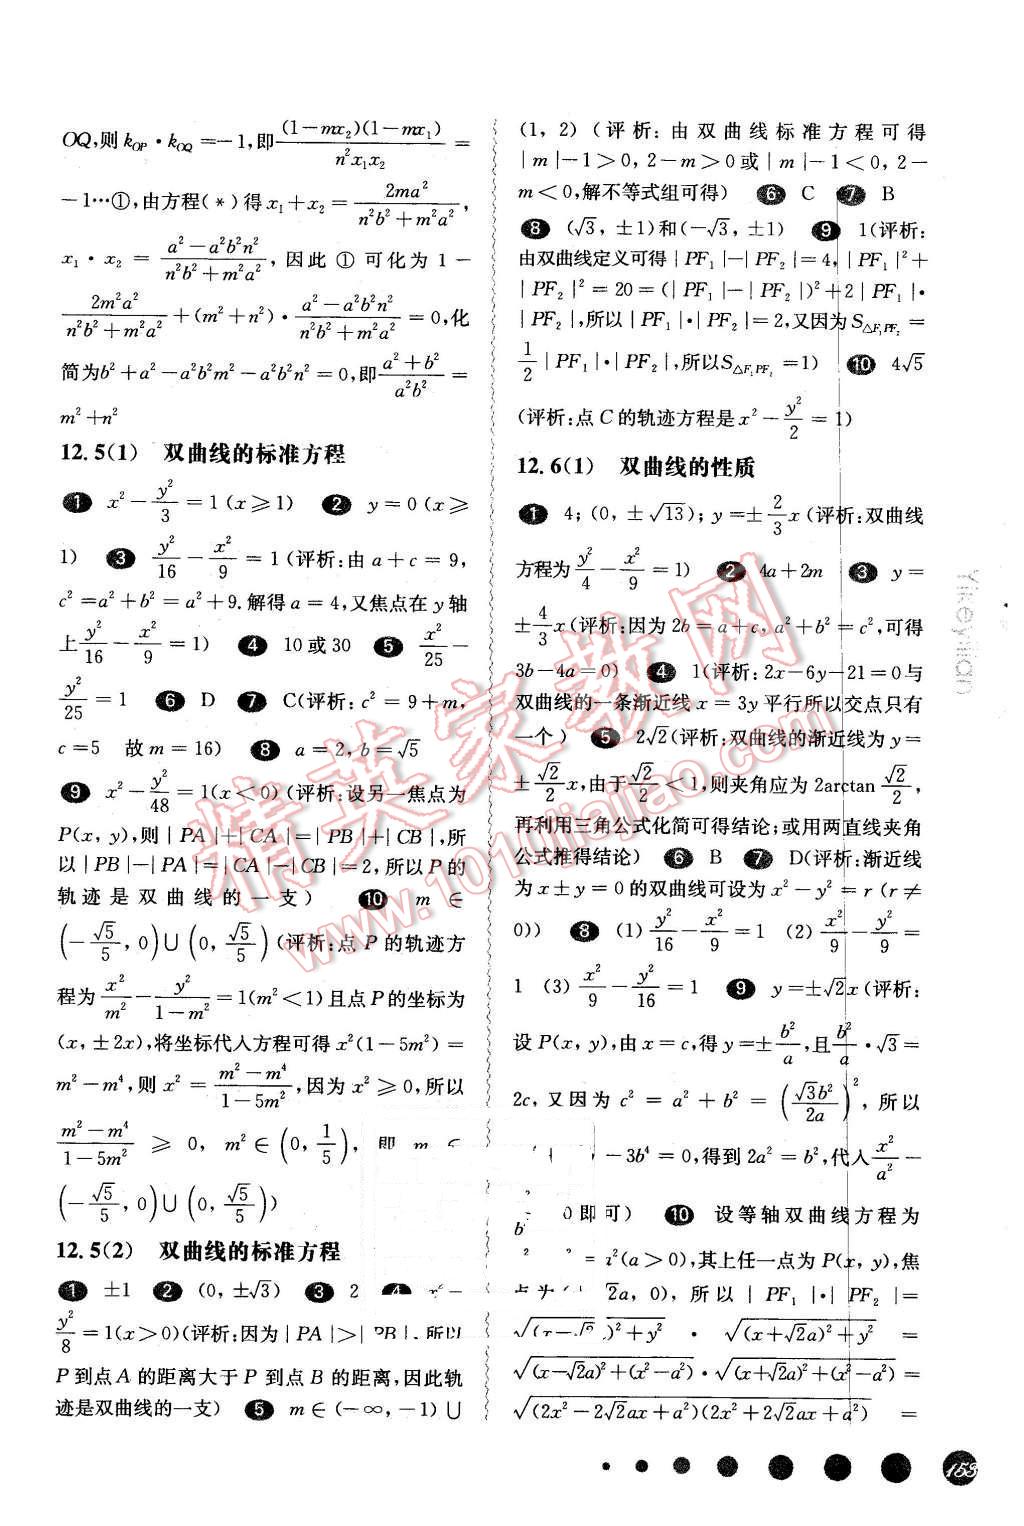 OQ,则 k_OP · k_OQ = −1,即 (1−mx₂)(1−mx₁)/(n²x₁x₂) =
−1…①,由方程(*)得 x₁+x₂ = 2ma²/(n²b²+m²a²),
x₁·x₂ = (a²−a²b²n²)/(n²b²+m²a²), 因此 ① 可化为 1−
2m²a²/(n²b²+m²a²) + (m²+n²)·(a²−a²b²n²)/(n²b²+m²a²) = 0,化
简为b²+a²−a²b²m²−a²b²n²=0,即 (a²+b²)/(a²b²) =
m²+n²
12.5(1) 双曲线的标准方程
❶ x²−y²/3=1(x⩾1) ❷ y=0(x⩾
1) ❸ y²/16−x²/9=1(评析:由 a+c=9,
c²=a²+b²=a²+9.解得 a=4,又焦点在 y 轴
上 y²/16−x²/9=1) ❹ 10 或 30 ❺ x²/25−
y²/25=1 ❻ D ❼ C(评析:c²=9+m,
c=5 故 m=16) ❽ a=2,b=√5
❾ x²−y²/48=1(x<0)(评析:设另一焦点为
P(x, y),则|PA|+|CA|=|PB|+|CB|,所
以|PB|−|PA|=|CA|−|CB|=2,所以P的
轨迹是双曲线的一支) ❿ m∈
(−√5/5, 0)∪(0, √5/5)(评析:点 P 的轨迹方
程为 x²/m²−y²/(1−m²)=1(m²<1)且点P的坐标为
(x, ±2x),将坐标代入方程可得 x²(1−5m²)=
m²−m⁴,则 x²=(m²−m⁴)/(1−5m²),因为 x²⩾0,所以
(m²−m⁴)/(1−5m²) ⩾ 0, m²∈(0, 1/5), 即 m∈
(−√5/5, 0)∪(0, √5/5))
12.5(2) 双曲线的标准方程
❶ ±1 ❷ (0, ±√3) ❸ 2 ❹ x²−
y²/8=1(x>0)(评析:因为|PA|>|PB|,所以
P 到点 A 的距离大于 P 到点 B 的距离,因此轨
迹是双曲线的一支) ❺ m∈(−∞, −1)∪
(1, 2)(评析:由双曲线标准方程可得
|m|−1>0, 2−m>0或|m|−1<0, 2−
m<0,解不等式组可得) ❻ C ❼ B
❽ (√3, ±1)和(−√3, ±1) ❾ 1(评析:
由双曲线定义可得|PF₁|−|PF₂|=4,|PF₁|²+
|PF₂|²=20=(|PF₁|−|PF₂|)²+2|PF₁|·
|PF₂|,所以|PF₁|·|PF₂|=2,又因为S△F₁PF₂=
1/2|PF₁|·|PF₂|,所以S△F₁PF₂=1) ❿ 4√5
(评析:点 C 的轨迹方程是 x²−y²/2=1)
12.6(1) 双曲线的性质
❶ 4;(0, ±√13);y=±2/3x(评析:双曲线
方程为 y²/4−x²/9=1) ❷ 4a+2m ❸ y=
±4/3x(评析:因为 2b=a+c, a²+b²=c²,可得
3b−4a=0) ❹ 1(评析:2x−6y−21=0与
双曲线的一条渐近线 x=3y 平行所以交点只有
一个) ❺ 2√2(评析:双曲线的渐近线为 y=
±√2/2x,由于√2/2<1,则夹角应为 2arctan√2/2,
再利用三角公式化简可得结论;或用两直线夹角
公式推得结论) ❻ B ❼ D(评析:渐近线
为 x±y=0 的双曲线可设为 x²−y²=r(r≠
0)) ❽ (1) y²/16−x²/9=1 (2) x²/9−y²/9=
1 (3) x²/9−y²/16=1 ❾ y=±√2x(评析:
设 P(x, y),由 x=c,得 y=±b²/a,且 b²/a·√3=
2c, 又因为 c²=a²+b²=(√3b²/2a)², 所以
−3b⁴=0,得到 2a²=b²,代入 x²/a²−
b 0即可) ❿ 设等轴双曲线方程为
²(a>0),其上任一点为 P(x, y),焦
点为 2a, 0), 所以 |PF₁|·|PF₂|=
+y² · √((x+√2a)²+y²) =
√((x−√2a)²+(x²−a²)) · √((x+√2a)²+(x²−a²)) =
√((2x²−2√2ax+a²)(2x²+2√2ax+a²)) =
Yikeyilian
153
精英家教网
www.1010jiajiao.com